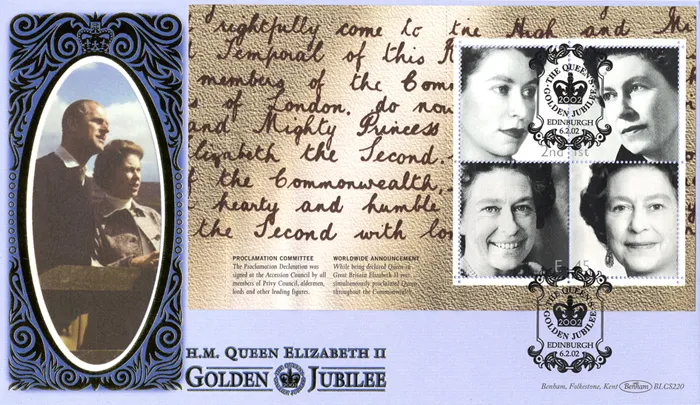 rightfully come to the High and Mi
Temporal of this R
members of the Com
s of London, do now
and Mighty Princess
lizabeth the Second.
the Commonwealth,
hearty and humble
the Second with lon
PROCLAMATION COMMITTEE
The Proclamation Declaration was
signed at the Accession Council by all
members of Privy Council, aldermen,
lords and other leading figures.
WORLDWIDE ANNOUNCEMENT
While being declared Queen in
Great Britain Elizabeth II was
simultaneously proclaimed Queen
throughout the Commonwealth.
2nd 1st
E 45
THE QUEEN'S
GOLDEN JUBILEE
2002
EDINBURGH
6.2.02
THE QUEEN'S
GOLDEN JUBILEE
2002
EDINBURGH
6.2.02
H.M. QUEEN ELIZABETH II
GOLDEN JUBILEE
Benham, Folkestone, Kent Benham BLCS220